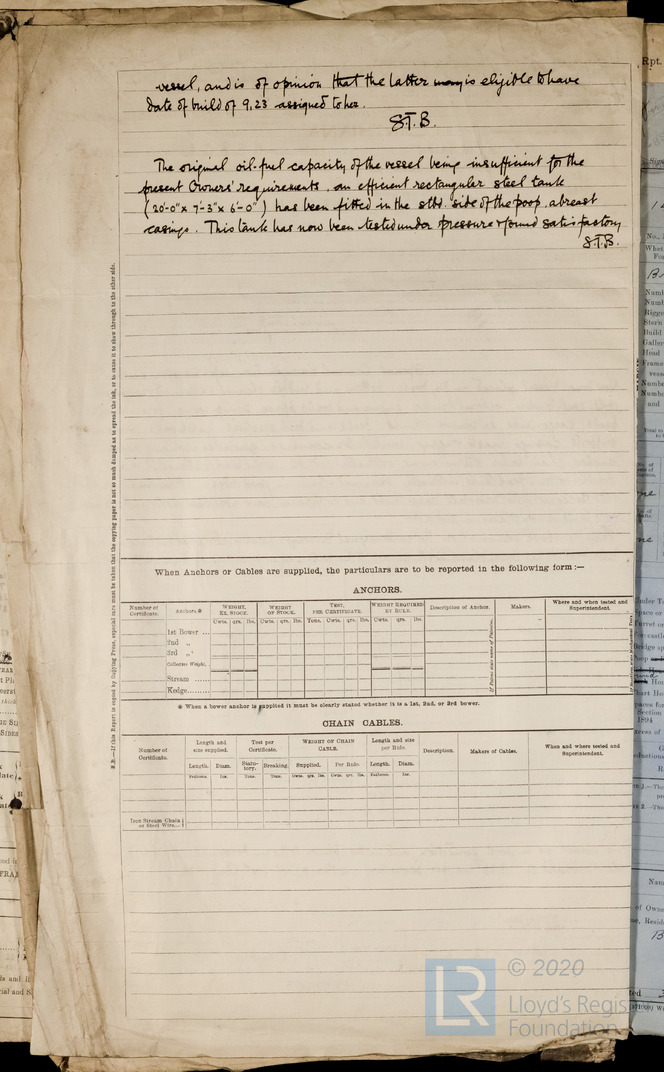 vessel, and is of opinion that the latter may is eligible to have
date of build of 9.23 assigned to her.
S.T.B.
The original oil-fuel capacity of the vessel being insufficient for the
present Owners' requirements, an efficient rectangular steel tank
(20'-0" x 7'-3" x 6'-0") has been fitted in the stbd. side of the poop, abreast
casings. This tank has now been tested under pressure & found satisfactory
S.T.B.
N.B.—If this Report is copied by Copying Press, especial care must be taken that the copying paper is not so much damped as to spread the ink, or to cause it to show through to the other side.
When Anchors or Cables are supplied, the particulars are to be reported in the following form :—
ANCHORS.
Number of Certificate. Anchors.* WEIGHT, EX. STOCK. WEIGHT OF STOCK. TEST, PER CERTIFICATE. WEIGHT REQUIRED BY RULE. Description of Anchor. Makers. Where and when tested and Superintendent.
Cwts. qrs. lbs. Cwts. qrs. lbs. Tons. Cwts. qrs. lbs. Cwts. qrs. lbs.
1st Bower ...
2nd „
3rd „
Collective Weight.
Stream ......
Kedge........
If Patent state name of Patentee.
* When a bower anchor is supplied it must be clearly stated whether it is a 1st, 2nd, or 3rd bower.
CHAIN CABLES.
Number of Certificate. Length and size supplied. Test per Certificate. WEIGHT OF CHAIN CABLE. Length and size per Rule. Description. Makers of Cables. When and where tested and Superintendent.
Length. Diam. Statutory. Breaking. Supplied. Per Rule. Length. Diam.
Fathoms. Ins. Tons. Tons. Cwts. qrs. lbs. Cwts. qrs. lbs. Fathoms. Ins.
Iron Stream Chain or Steel Wire...
LR
© 2020
Lloyd's Regis
Foundation